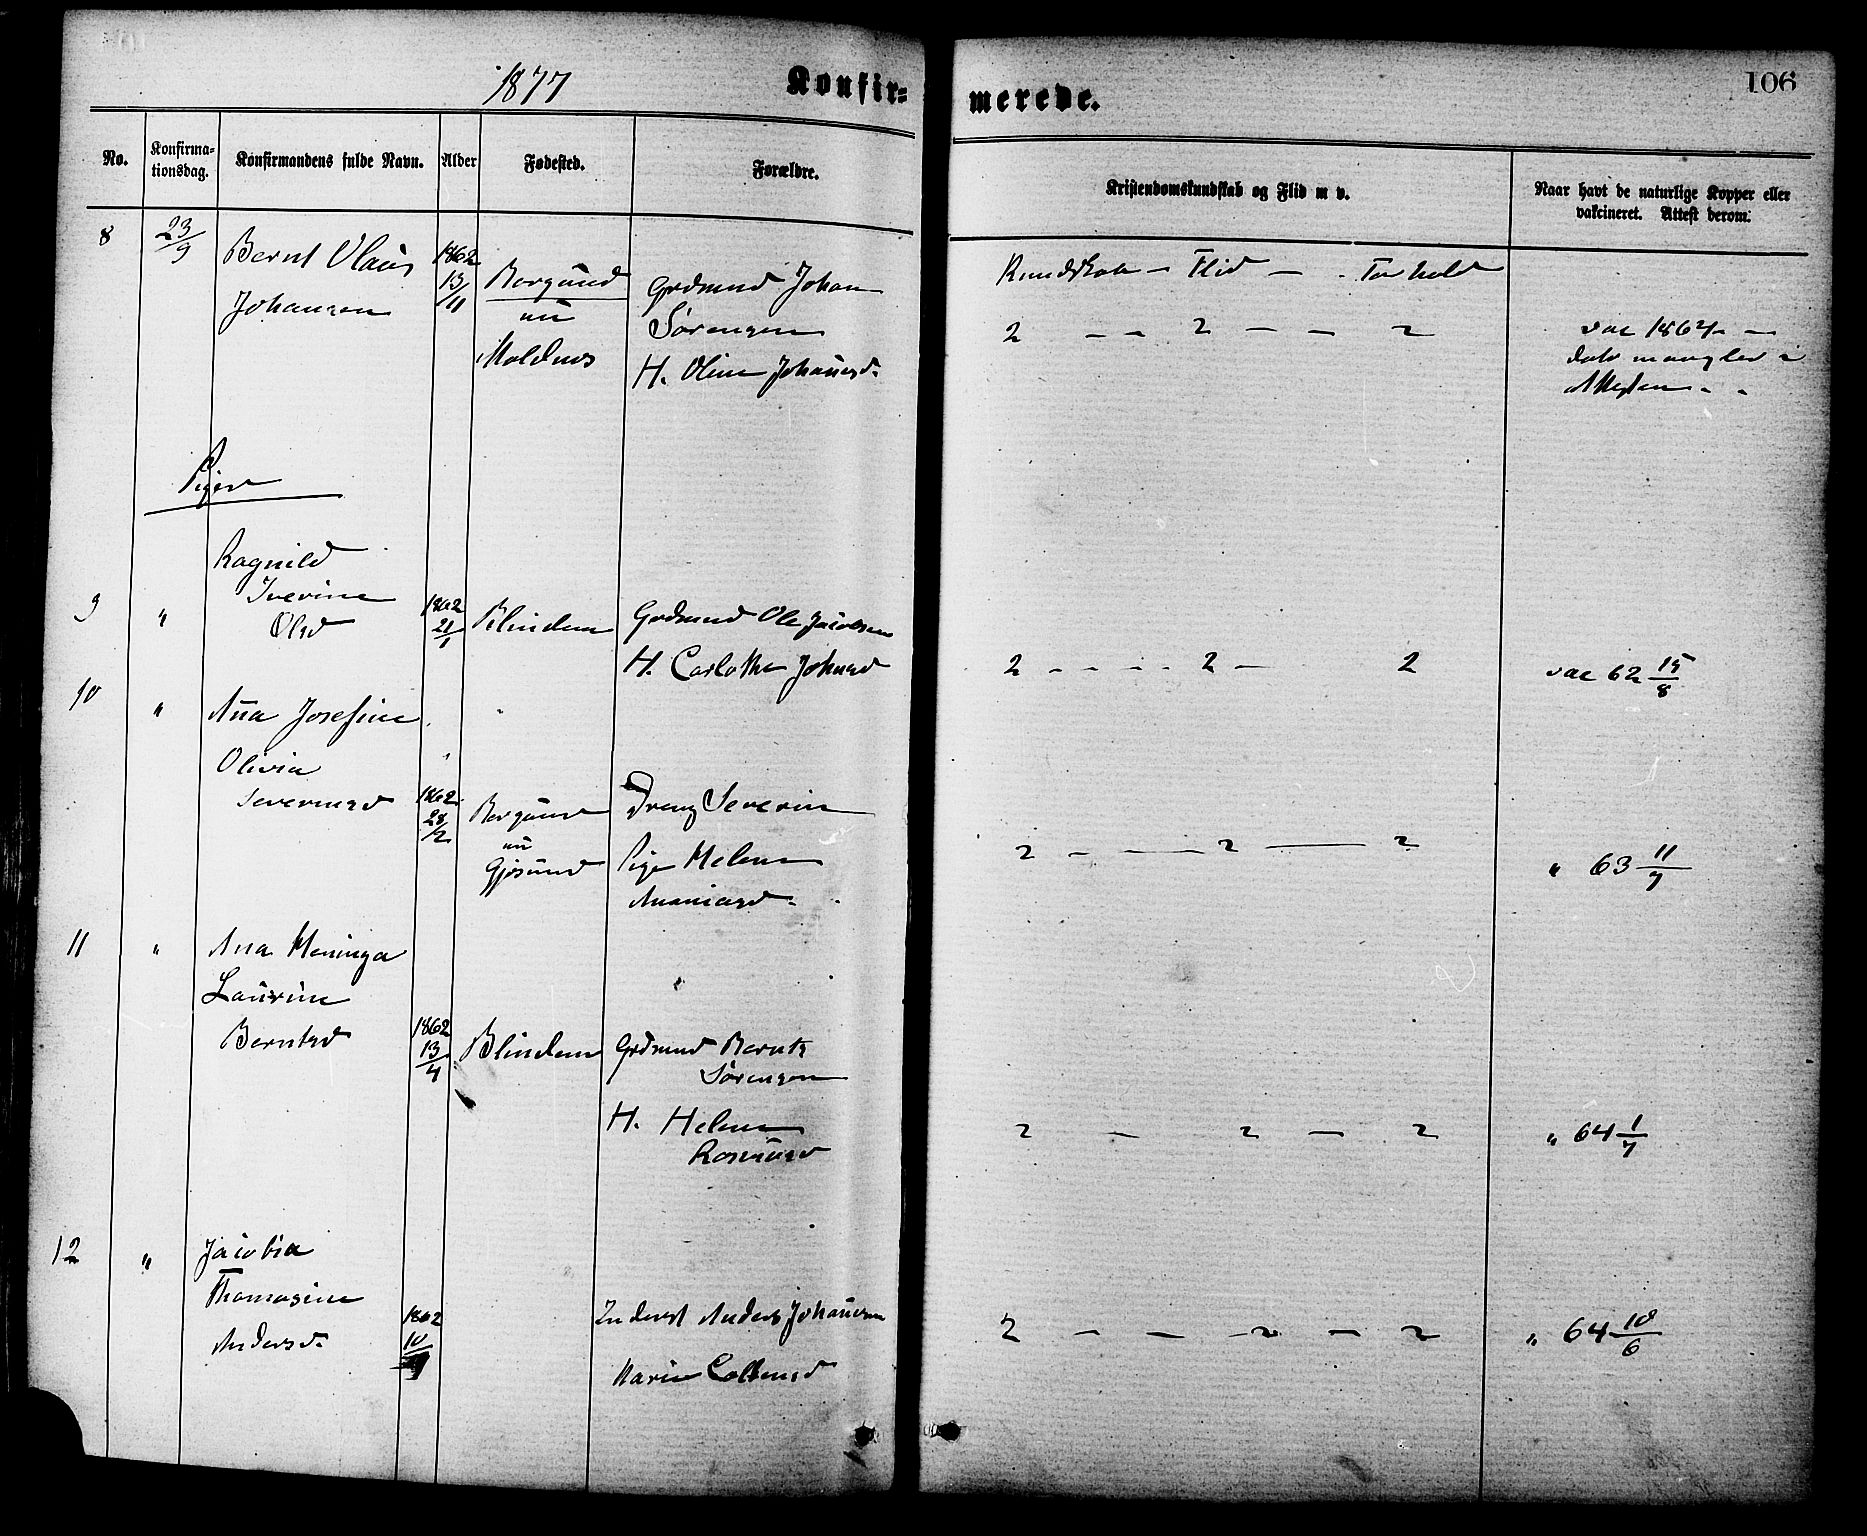 1877
Konfir=
merede.
106
No.
Konfirma-
tionsdag.
Konfirmandens fulde Navn.
Alder
Fødested.
Forældre.
Kristendomskundskab og Flid m v.
Naar havt de naturlige Kopper eller
vakcineret. Attest derom.
8
23/9
Bernt Olaus
Johansen
1862
13/11
Borgund
nu
Moldnes
Grdmnd Johan
Sørensen
H. Oline Johansd.
Kundskab - Flid - - Forhold
2 - - 2 - - 2
vac 1864 -
dato mangler i
Attesten - -
Piger
9
"
Ragnild
Iverine
Olsd
1862
21/1
Blindem
Grdmnd Ole Jacobsen
H. Carlotha Johnsd
2 - - - - 2 - 2
vac 62 15/8
10
"
Ana Josefine
Olivia
Severinsd
1862
28/2
Borgund
nu
Gjøsund
Dreng Severin
Pige Helene
Ananiasd.
2 - - - 2 - 2
" 63 11/7
11
"
Ana Heninga
Laurine
Berntsd
1862
13/4
Blindem
Grdmnd Bernts
Sørensen
H. Helene
Rasmusd
2 - 2 - 2
" 64 1/7
12
"
Jacobia
Thomasine
Andersd.
1862
10
Inderst Anders Johansen
Karine Coltensd
2 - - 2 - 2
" 64 18/6